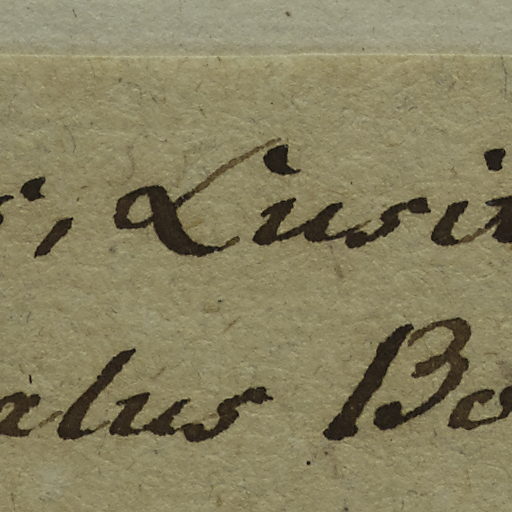 s, Lusit
alus Bo